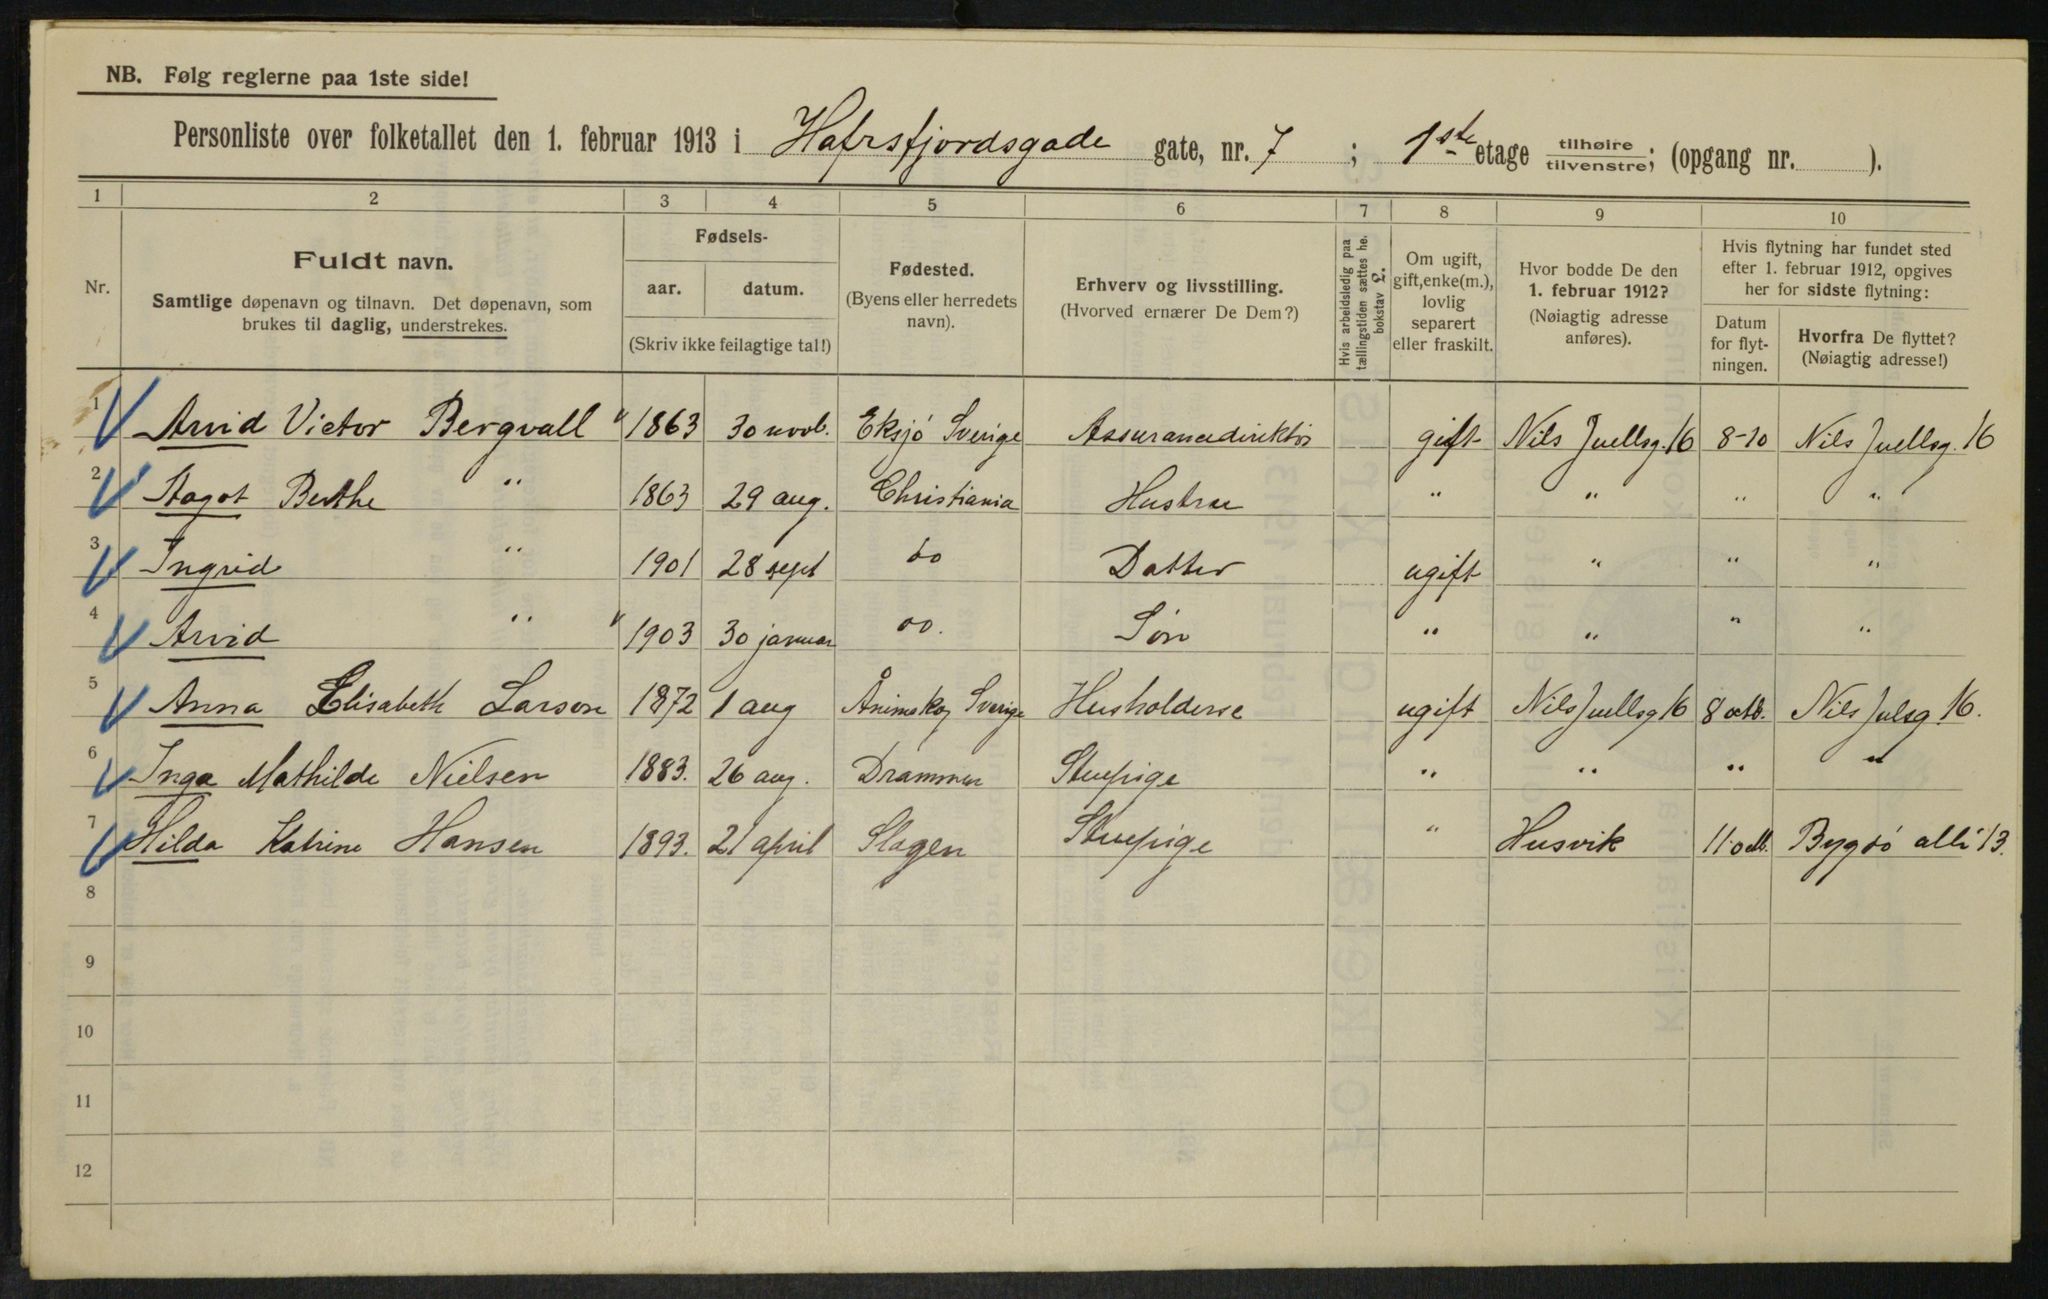 NB. Følg reglerne paa 1ste side!
Personliste over folketallet den 1. februar 1913 i Hafrsfjordsgade gate, nr. 7 ; 1ste etage tilhøire tilvenstre; (opgang nr. ).
1 2 3 4 5 6 7 8 9 10
Nr.
Fuldt navn.
Samtlige døpenavn og tilnavn. Det døpenavn, som
brukes til daglig, understrekes.
Fødsels-
aar. datum.
(Skriv ikke feilagtige tal!)
Fødested.
(Byens eller herredets
navn).
Erhverv og livsstilling.
(Hvorved ernærer De Dem?)
Hvis arbeidsledig paa
tællingstiden sættes he.
bokstav L.
Om ugift,
gift, enke(m.),
lovlig
separert
eller fraskilt.
Hvor bodde De den
1. februar 1912?
(Nøiagtig adresse
anføres).
Hvis flytning har fundet sted
efter 1. februar 1912, opgives
her for sidste flytning:
Datum
for flyt-
ningen.
Hvorfra De flyttet?
(Nøiagtig adresse!)
1 Arvid Victor Bergvall 1863 30 novb. Eksjö Sverige Assurancedirektör gift Nils Juellsg. 16 8-10 Nils Juellsg. 16
2 Dagot Berthe " 1863 29 aug. Christiania Hustru " " " "
3 Ingrid " 1901 28 sept do Datter ugift " " "
4 Arvid " 1903 30 januar do. Søn " " " "
5 Anna Elisabeth Larson 1872 1 aug Ånimskog Sverige Husholderse ugift Nils Juellsg 16 8 octb. Nils Julsg. 16.
6 Inga Mathilde Nielsen 1883. 26 aug. Drammen Stuepige " " " "
7 Hilda Katrine Hansen 1893. 21 april Slagen Stuepige " Husvik 11 octb. Bygdö allé 13.
8
9
10
11
12